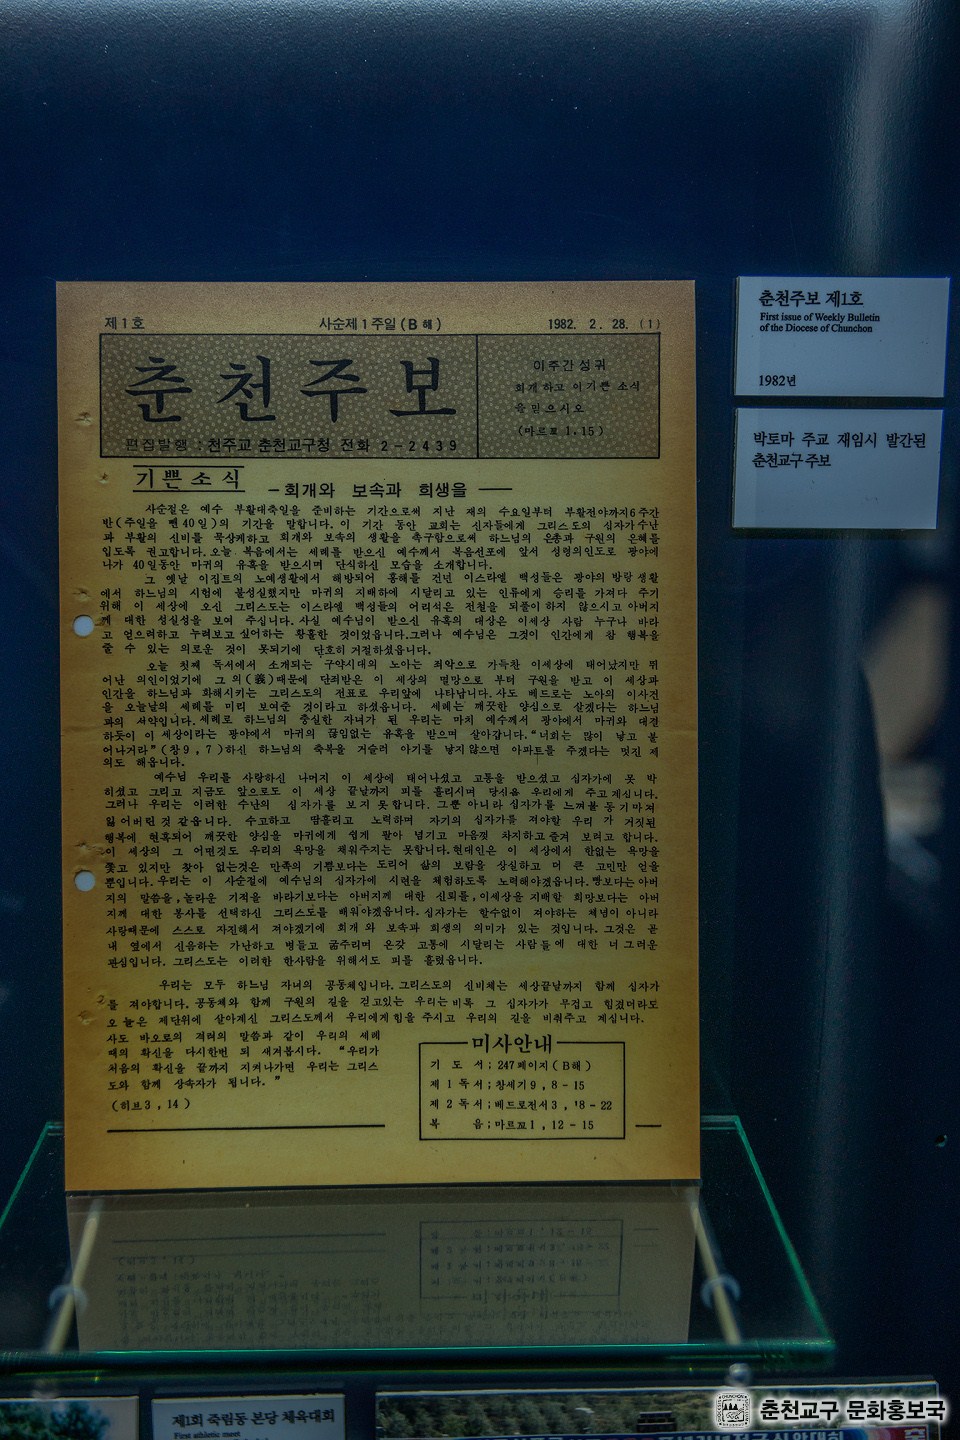 제1호 사순제1주일(B해) 1982. 2. 28. (1)
춘천주보
편집발행 : 천주교 춘천교구청 전화 2-2439
이주간성귀
회개하고 이기쁜 소식
을 믿으시오
(마르꼬 1.15)
기쁜소식
-회개와 보속과 희생을 ──
사순절은 예수 부활대축일을 준비하는 기간으로써 지난 재의 수요일부터 부활전야까지6주간
반(주일을 뺀 40일)의 기간을 말합니다. 이 기간 동안 교회는 신자들에게 그리스도의 십자가수난
과 부활의 신비를 묵상케하고 회개와 보속의 생활을 촉구함으로써 하느님의 은총과 구원의 은혜를
입도록 권고합니다. 오늘 복음에서는 세례를 받으신 예수께서 복음선포에 앞서 성령의인도로 광야에
나가 40일동안 마귀의 유혹을 받으시며 단식하신 모습을 소개합니다.
그 옛날 이집트의 노예생활에서 해방되어 홍해를 건넌 이스라엘 백성들은 광야의 방랑 생활
에서 하느님의 시험에 불성실했지만 마귀의 지배하에 시달리고 있는 인류에게 승리를 가져다 주기
위해 이 세상에 오신 그리스도는 이스라엘 백성들의 어리석은 전철을 되풀이하지 않으시고 아버지
께 대한 성실성을 보여 주십니다. 사실 예수님이 받으신 유혹의 대상은 이세상 사람 누구나 바라
고 얻으려하고 누려보고 싶어하는 황홀한 것이었읍니다.그러나 예수님은 그것이 인간에게 참 행복을
줄 수 있는 의로운 것이 못되기에 단호히 거절하셨읍니다.
오늘 첫째 독서에서 소개되는 구약시대의 노아는 죄악으로 가득찬 이세상에 태어났지만 뛰
어난 의인이었기에 그 의(義)때문에 단죄받은 이 세상의 멸망으로 부터 구원을 받고 이 세상과
인간을 하느님과 화해시키는 그리스도의 전표로 우리앞에 나타납니다. 사도 베드로는 노아의 이사건
을 오늘날의 세례를 미리 보여준 것이라고 하셨읍니다. 세례는 깨끗한 양심으로 살겠다는 하느님
과의 서약입니다. 세례로 하느님의 충실한 자녀가 된 우리는 마치 예수께서 광야에서 마귀와 대결
하듯이 이 세상이라는 광야에서 마귀의 끊임없는 유혹을 받으며 살아갑니다. “너희는 많이 낳고 불
어나거라”(창9, 7)하신 하느님의 축복을 거슬러 아기를 낳지않으면 아파트를 주겠다는 멋진 제
의도 해옵니다.
예수님 우리를 사랑하신 나머지 이 세상에 태어나셨고 고통을 받으셨고 십자가에 못 박
히셨고 그리고 지금도 앞으로도 이 세상 끝날까지 피를 흘리시며 당신을 우리에게 주고 계십니다.
그러나 우리는 이러한 수난의 십자가를 보지 못합니다. 그뿐 아니라 십자가를 느껴볼 동기마져
잃어버린 것 같읍니다. 수고하고 땀흘리고 노력하며 자기의 십자가를 져야할 우리 가 거짓된
행복에 현혹되어 깨끗한 양심을 마귀에게 쉽게 팔아 넘기고 마음껏 차지하고즐겨 보려고 합니다.
이 세상의 그 어떤것도 우리의 욕망을 채워주지는 못합니다. 현대인은 이 세상에서 한없는 욕망을
쫓고 있지만 찾아 얻는것은 만족의 기쁨보다는 도리어 삶의 보람을 상실하고 더 큰 고민만 얻을
뿐입니다. 우리는 이 사순절에 예수님의 십자가에 시련을 체험하도록 노력해야겠읍니다. 빵보다는아버
지의 말씀을, 놀라운 기적을 바라기보다는 아버지께 대한 신뢰를, 이세상을 지배할 희망보다는 아버
지께 대한 봉사를 선택하신 그리스도를 배워야겠읍니다. 십자가는 할수없이 져야하는 체념이 아니라
사랑때문에 스스로 자진해서 져야겠기에 회개 와 보속과 희생의 의미가 있는 것입니다. 그것은 곧
내 옆에서 신음하는 가난하고 병들고 굶주리며 온갖 고통에 시달리는 사람들에 대한 너그러운
관심입니다. 그리스도는 이러한 한사람을 위해서도 피를 흘렸읍니다.
우리는 모두 하느님 자녀의 공동체입니다. 그리스도의 신비체는 세상끝날까지 함께 십자가
를 져야합니다. 공동체와 함께 구원의 길을 걷고있는 우리는 비록 그 십자가가 무겁고 힘겹더라도
오늘은 제단위에 살아계신 그리스도께서 우리에게힘을 주시고 우리의 길을 비춰주고 계십니다.
사도 바오로의 격려의 말씀과 같이 우리의 세례
때의 확신을 다시한번 되 새겨봅시다. “우리가
처음의 확신을 끝까지 지켜나가면 우리는 그리스
도와 함께 상속자가 됩니다.”
(히브3, 14)
미사안내
기 도 서 ; 247페이지(B해)
제 1 독서 ; 창세기9, 8-15
제 2 독서 ; 베드로전서3, 18-22
복 음 ; 마르꼬1, 12-15
춘천주보 제1호
First issue of Weekly Bulletin
of the Diocese of Chunchon
1982년
박토마 주교 재임시 발간된
춘천교구 주보
제1회 죽림동 본당 체육대회
First athletic meet
춘천교구 문화홍보국